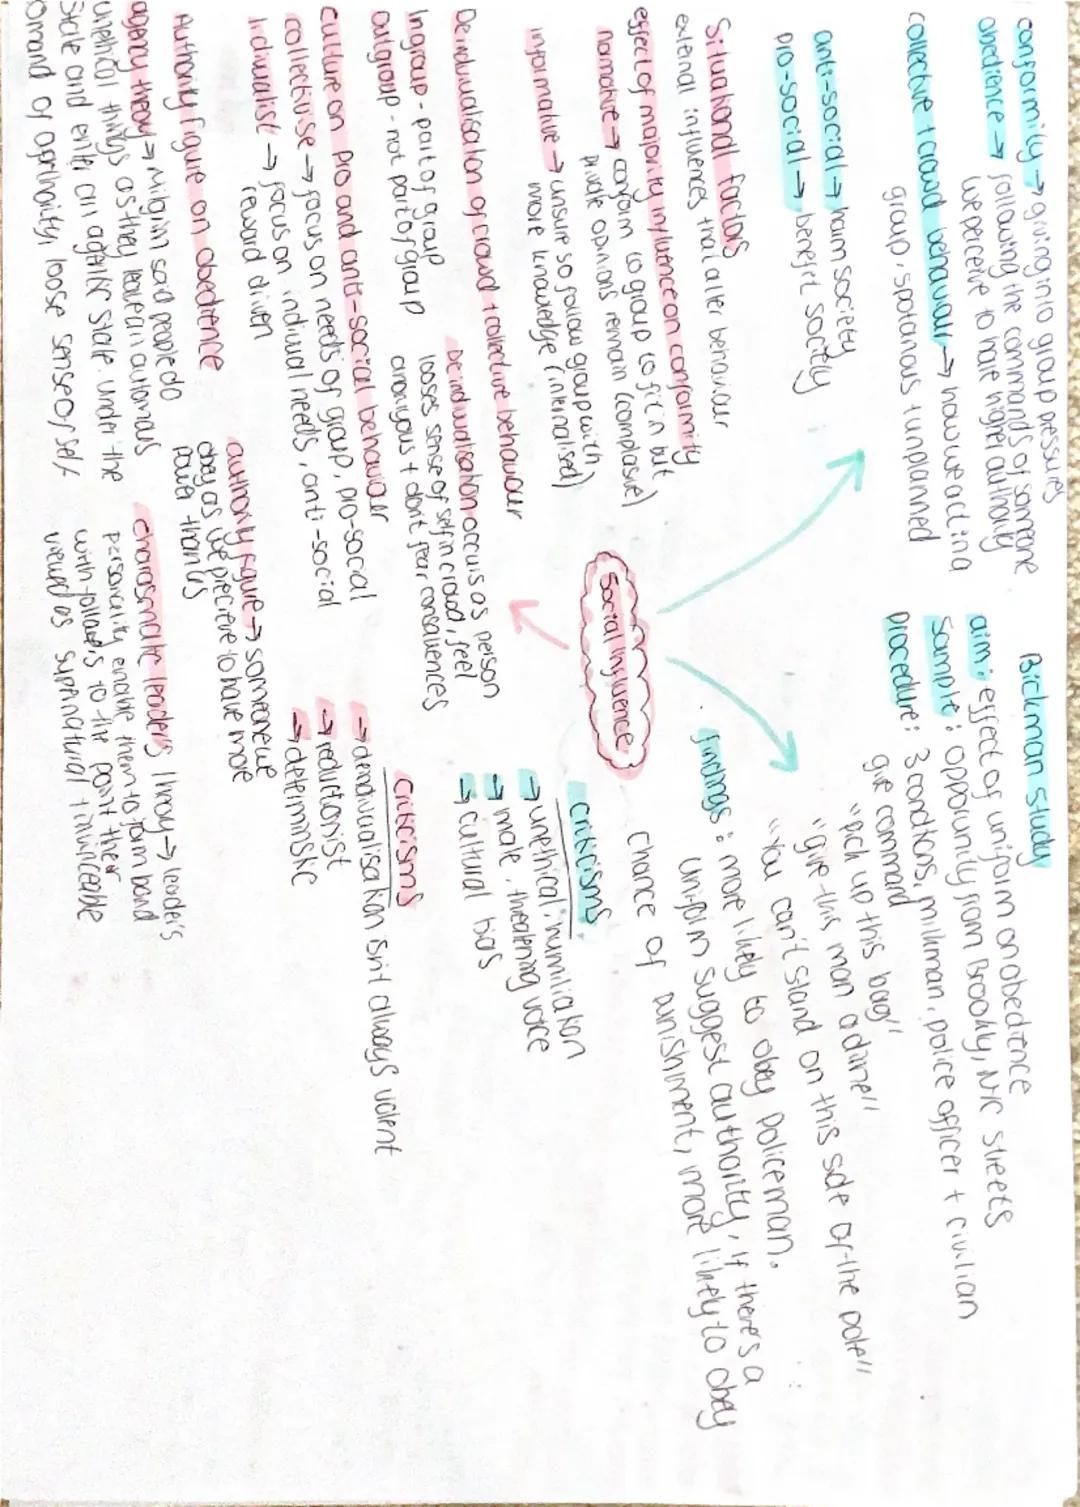 conformity → giving into group pressures
obedience → following the commands of someone
we perceive to have higher authority
collective + crowd behaviour → how we act in a
group, spotanous + unplanned
anti-social → harm society
pro-social → benefit society
Bickman study
aim: effect of uniform on obedience
sample: opporunity from Brookly, NYC streets
procedure: 3 conditions, milkman, police officer + civilian
give command
"pick up this bag"
"give this man a dime"
"You can't stand on this side of the pole"
findings: more likely to obey policeman.
uniform suggest authority, if there's a
chance of punishment, more likely to obey
criticisms
→ unethical: humiliation
→ male, threatening voice
→ cultural bias
Social influence
Situational factors
external influences that alter behaviour
effect of majority influence on conformity
normative → conform to group to fit in but
private opinions remain (compliasive)
informative → unsure so follow group with
more knowledge (internalised)
Deindividualisation of crowd + collective behaviour
Ingroup - part of group
outgroup - not part of group
Deindividualisation occurs as person
looses sense of self in crowd, feel
anonyous + don't fear consequences
culture on pro and anti-social behaviour
collectivise → focus on needs of group, pro-social
Individualist → focus on individual needs, anti-social
reward driven
Authority figure on obedience
agency theory → Milgram said people do
unethical things as they leave an automous
State and enter an agentic state. under the
omand of agrthority, loose sense of self
authority figure → someone we
obey as we precieve to have more
power than us
charasmatic leaders theory → leaders
personality enable them to form bond
with follows to the point their
viewed as supernatural + invinceable
Criticisms
→ deindividualisation isn't always voilent
→ reductionist
→ determinstic